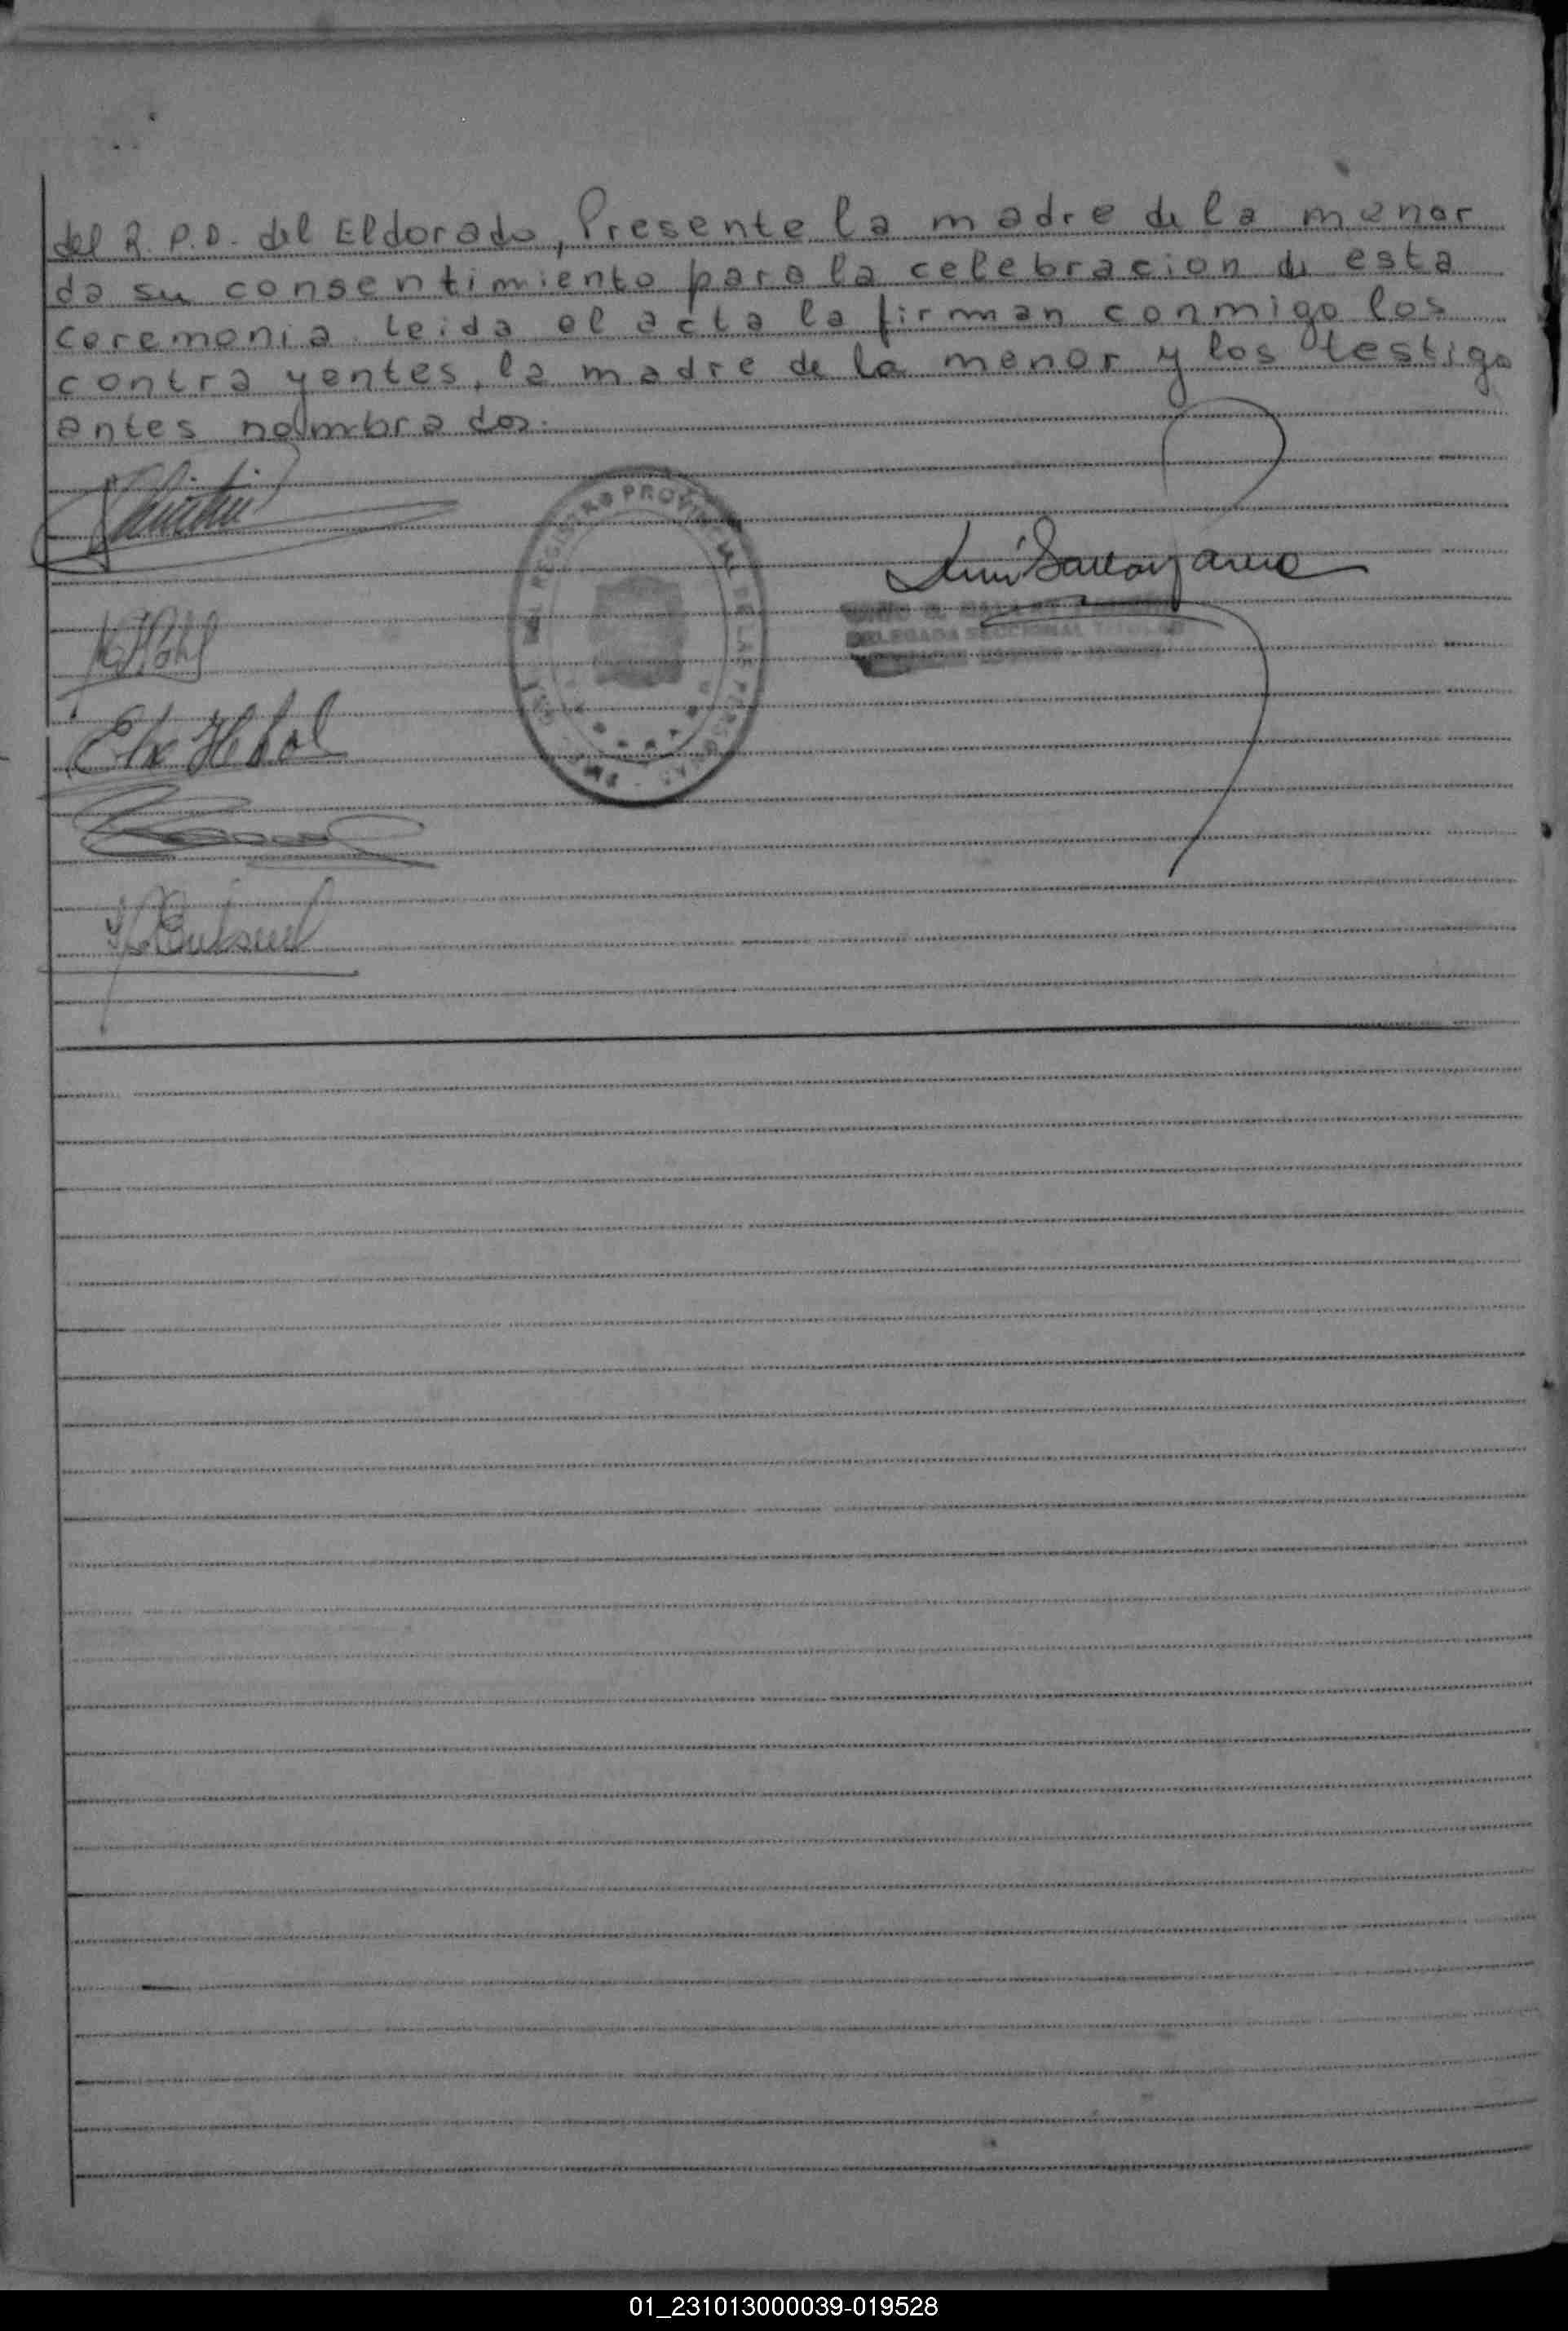 del R. P.D. del Eldorado, Presente la madre de la menor
da su consentimiento para la celebracion de esta
ceremonia. leida el acta la firman conmigo los
contrayentes, la madre de la menor y los testigo
antes nombrados.
REGISTRO PROVINCIAL DE LAS PERSONAS
DELEGADA SECCIONAL TITULAR
01_231013000039-019528